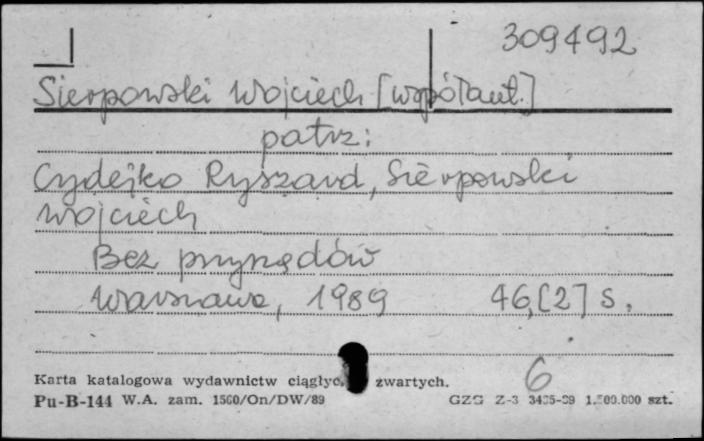 309492
Sierpowski Wojciech [współaut.]
patrz:
Cydejko Ryszard, Sierpowski
Wojciech
Bez przyrządów
Warszawa, 1989 46,[2] s.
6
Karta katalogowa wydawnictw ciągłyc zwartych.
Pu-B-144 W.A. zam. 1560/On/DW/89 GZG Z-3 1.500.000 szt.